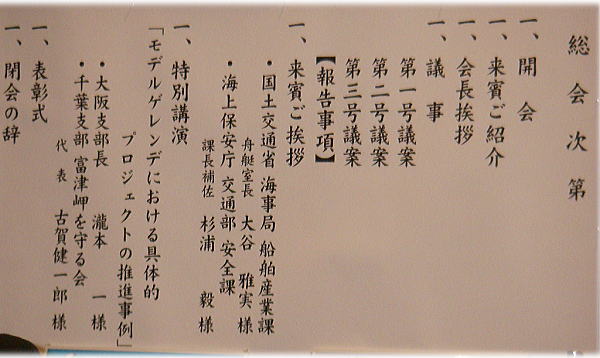 総会次第
一、開会
一、来賓ご紹介
一、会長挨拶
一、議事
第一号議案
第二号議案
第三号議案
【報告事項】
一、来賓ご挨拶
・国土交通省 海事局 船舶産業課
舟艇室長 大谷 雅実 様
・海上保安庁 交通部 安全課
課長補佐 杉浦 毅 様
一、特別講演
「モデルゲレンデにおける具体的
プロジェクトの推進事例」
・大阪支部長 瀧本 一 様
・千葉支部 富津岬を守る会
代表 古賀健一郎 様
一、表彰式
一、閉会の辞